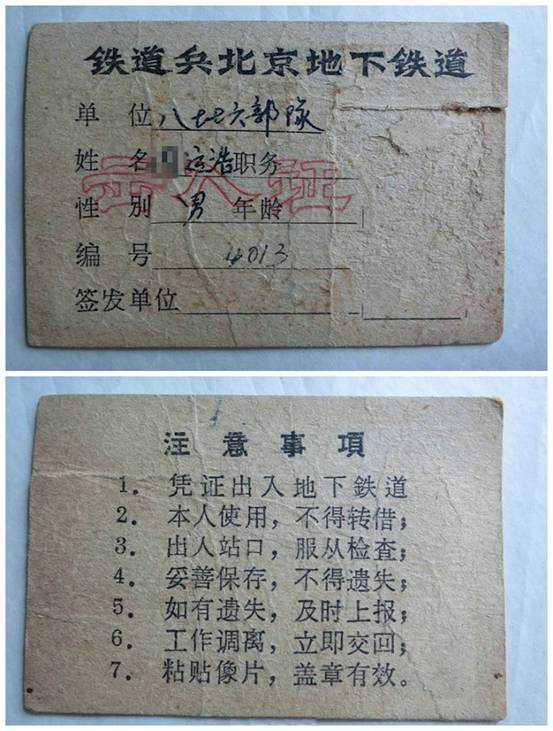 铁道兵北京地下铁道
单位 八七七六部隊
姓名 运浩 职务
出入证
性别 男 年龄
编号 4013
签发单位
注意事項
1. 凭证出入地下鉄道
2. 本人使用，不得转借；
3. 出入站口，服从检查；
4. 妥善保存，不得遗失；
5. 如有遗失，及时上报；
6. 工作调离，立即交回；
7. 粘贴像片，盖章有效。